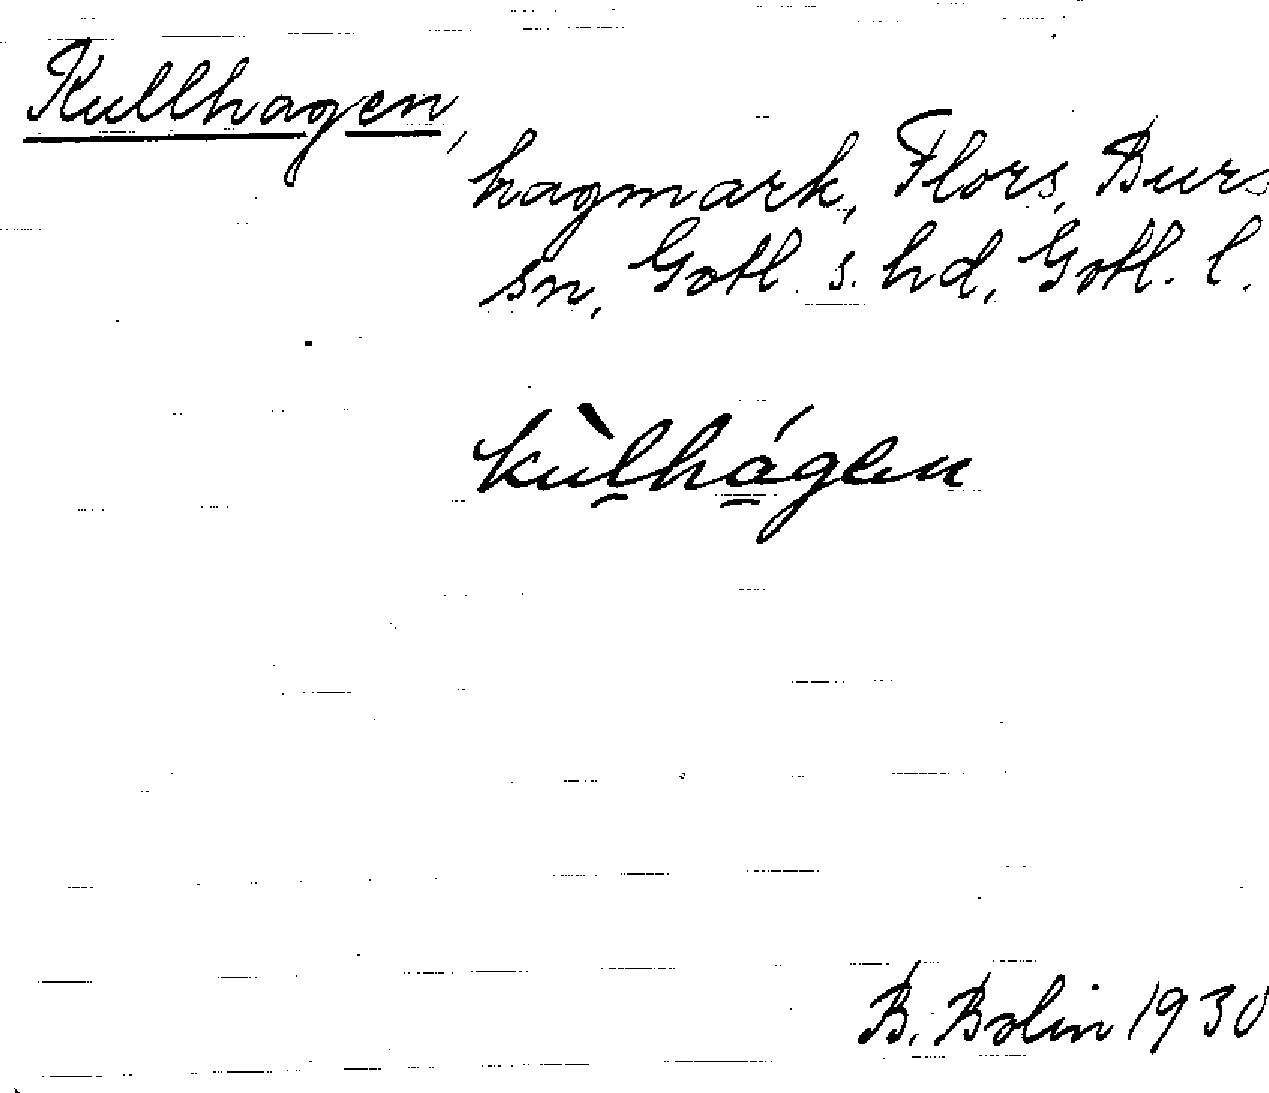 Kullhagen,
hagmark, Flors, Burs
sn, Gotl. s. hd, Gotl. l.
kùl̲há̲gen
B. Bolin 1930